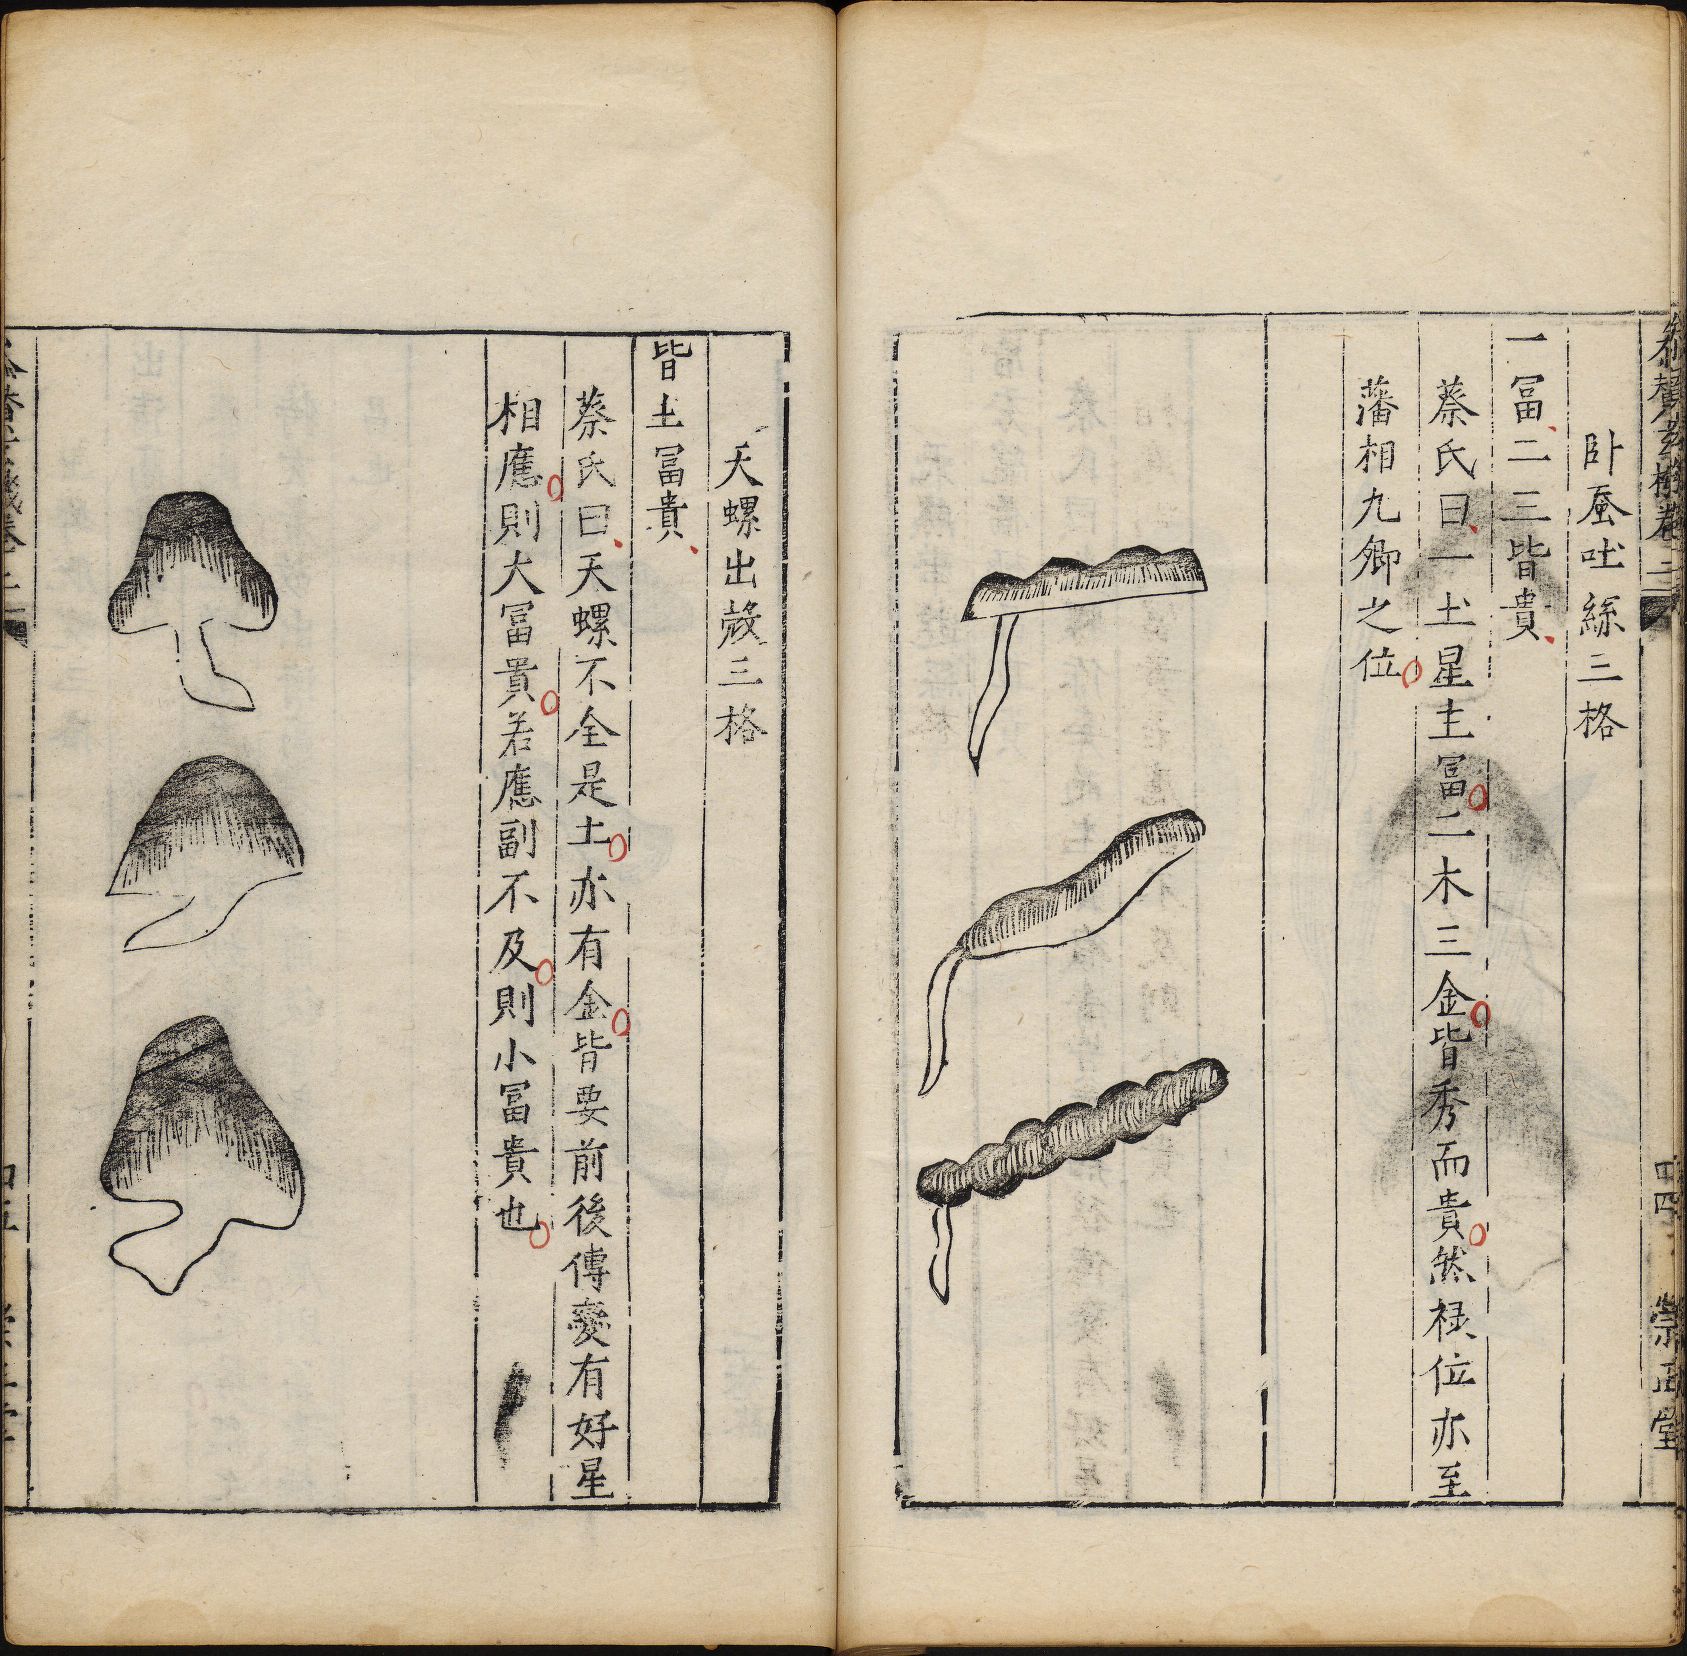 卧蚕吐絲三格
一冨二三皆貴
蔡氏曰一土星主冨二木三金皆秀而貴然祿位亦至
藩相九卿之位
四四
崇正堂
天螺出殼三格
皆土冨貴
蔡氏曰天螺不全是土亦有金皆要前後傳变有好星
相應則大冨貴若應副不及則小冨貴也